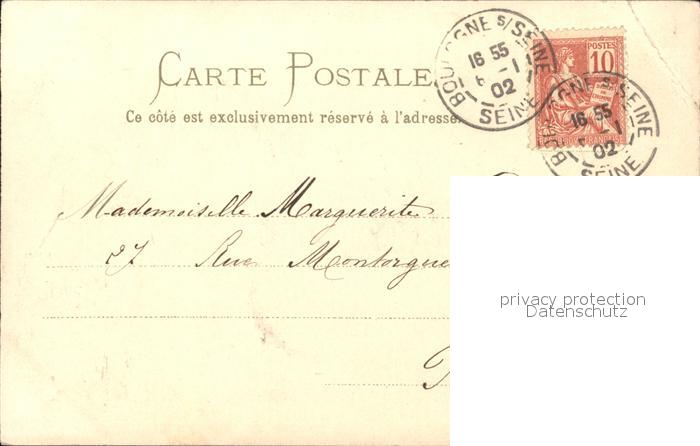 CARTE POSTALE
Ce côté est exclusivement réservé à l'adresse.
BOULOGNE S/SEINE
16 55
6 -1
02
SEINE
POSTES
10
BOULOGNE S/SEINE
16 55
6 -1
02
SEINE
Mademoiselle Marguerite
27 Rue Montorgue
privacy protection
Datenschutz